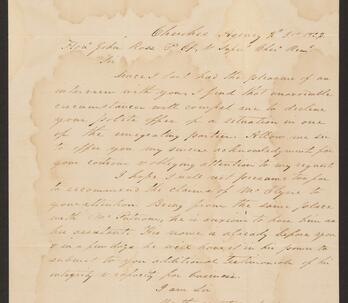 Cherokee Agency 1838
Hon. John Ross
Sir
Since I last had the pleasure of an
interview with you, I find that unavoidable
circumstances will compel me to decline
your polite offer of a situation in one
of the emigrating parties. Allow me sir
to offer you my sincere acknowledgments for
your courteous & obliging attention to my request
I hope I will not presume too far
to recommend the claims of Mr to your
attention. Being from the same place
with Mr he is anxious to have him as
his assistant. His name is already before you
& in a few days he will have it in his power to
submit to you additional testimonials of his
integrity & capacity for business.
I am Sir